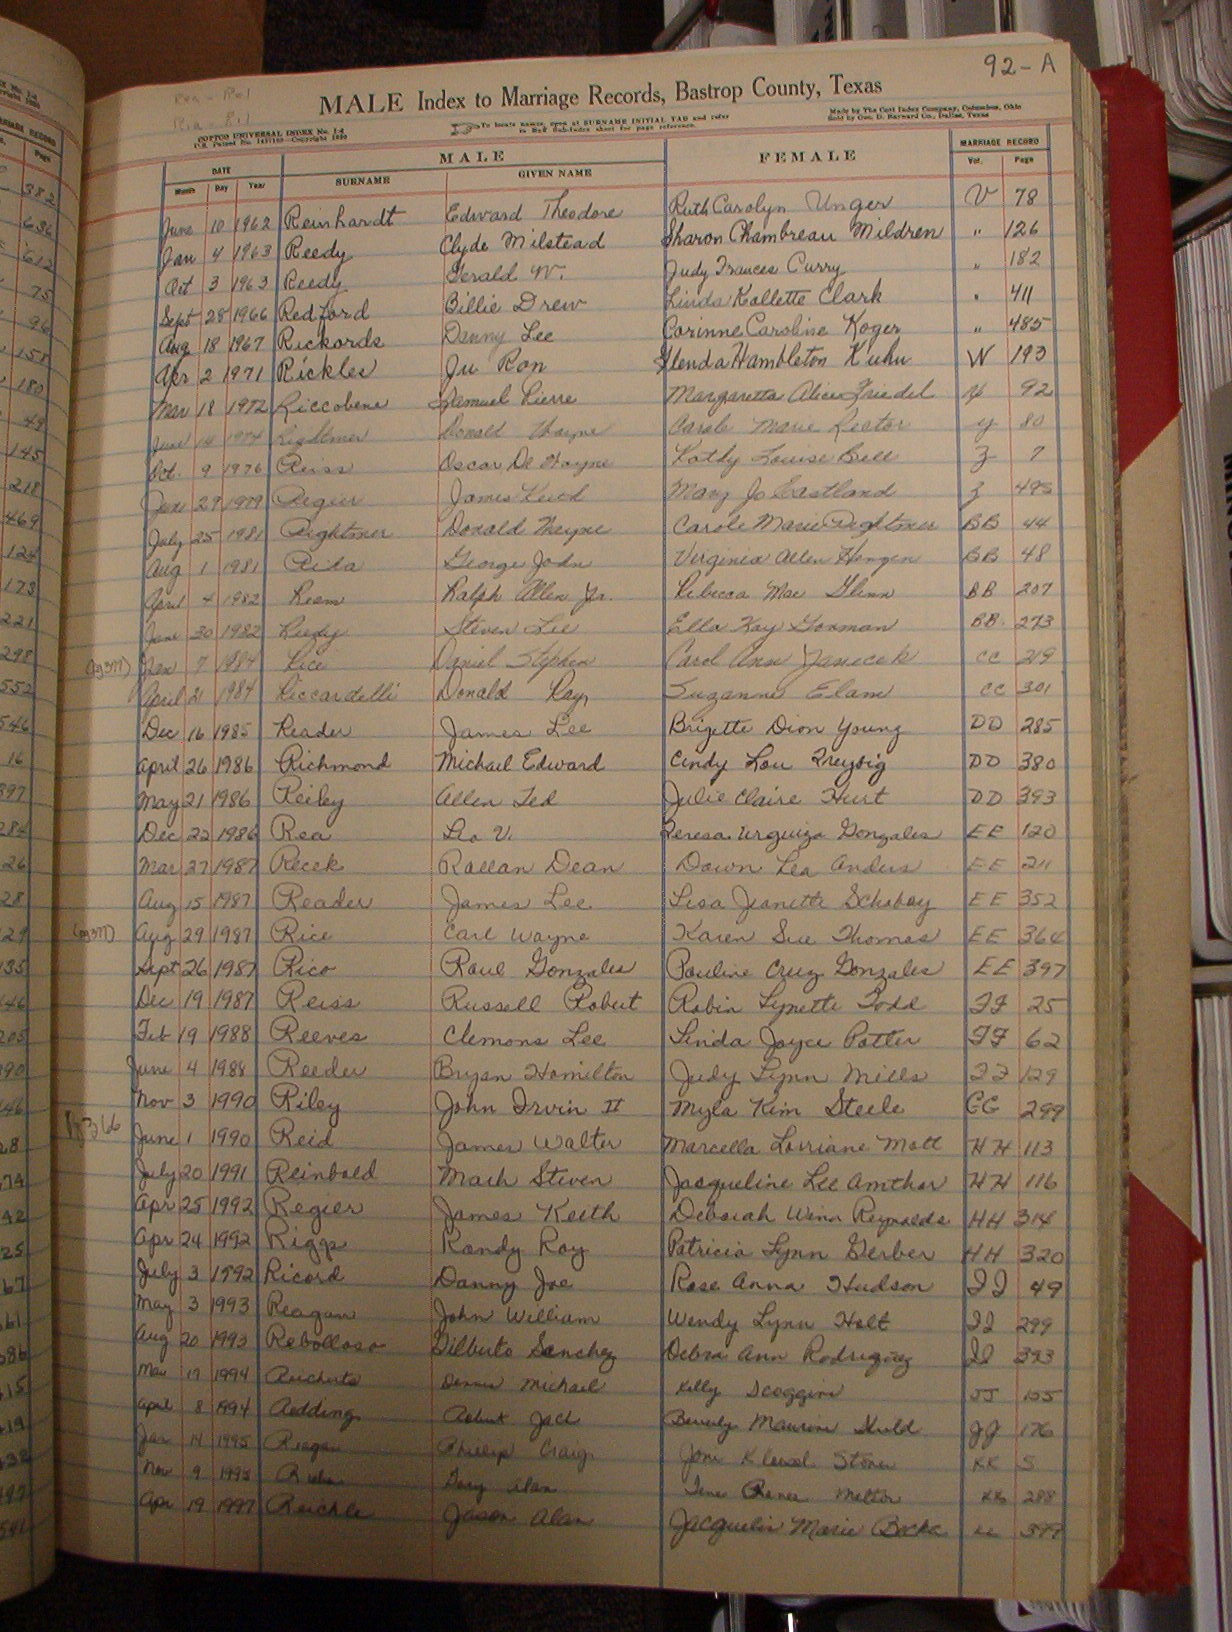 92-A
MALE Index to Marriage Records, Bastrop County, Texas
COTTCO UNIVERSAL INDEX No. 1-2
To locate names, open at SURNAME INITIAL TAB and refer
to Buff Sub-Index sheet for page reference.
Made by The Cott Index Company, Columbus, Ohio
Sold by Geo. D. Barnard Co., Dallas, Texas
DATE MALE FEMALE MARRIAGE RECORD
Month Day Year SURNAME GIVEN NAME Vol. Page
June 10 1962 Reinhardt Edward Theodore Ruth Carolyn Unger V 78
Jan 4 1963 Reedy Clyde Milstead Sharon Chambreau Mildren " 126
Oct 3 1963 Reedy Gerald W. Judy Frances Curry " 182
Sept 28 1966 Redford Billie Drew Linda Kollette Clark " 411
Aug 18 1967 Rickords Danny Lee Corinne Caroline Koger " 485
Apr 2 1971 Rickles Ju Ron Glenda Hambleton Kuhn W 193
Mar 18 1972 Riccobene Samuel Pierre Margaretta Alice Friedel X 92
June 14 1974 Rightmer Donald Wayne Carole Marie Rector Y 80
Oct. 9 1976 Reiss Oscar De Wayne Kathy Louise Bell Z 7
29 1979 Regier James Keith Mary Jo Eastland Z 495
July 25 1981 Rightmer Donald Wayne Carole Marie Rightmer BB 44
Aug 1 1981 George John Virginia Allen BB 48
April 4 1982 Ream Ralph Allen Jr. Rebecca Mae Glenn BB 207
June 30 1982 Reedy Steven Lee Ella Kay Gorman BB 273
7 1984 Rice Daniel Stephen Carol Ann Janecek CC 219
April 21 1984 Riccardelli Donald Ray Suzanne Elam CC 301
Dec 16 1985 Reader James Lee Brigette Dion Young DD 285
April 26 1986 Richmond Michael Edward Cindy Lou DD 380
May 21 1986 Reiley Allen Ted Julie Claire Hurt DD 393
Dec 22 1986 Rea Leo V. Teresa Urquiza Gonzales EE 120
Mar 27 1987 Recek Raelan Dean Dawn Lea Anders EE
Aug 15 1987 Reader James Lee Lisa Jeanette Schobey EE 352
Aug 29 1987 Rice Carl Wayne Karen Sue Thomas EE 364
Sept 26 1987 Rico Raul Gonzales Pauline Cruz Gonzales EE 397
Dec 19 1987 Reiss Russell Robert Robin Lynette Todd FF 25
Feb 19 1988 Reeves Clemons Lee Linda Joyce Potter FF 62
June 4 1988 Reeder Bryan Hamilton Judy Lynn Mills FF 129
Nov 3 1990 Riley John Irvin II Myla Kim Steele GG 299
June 1 1990 Reid James Walter Marcella Lorriane Mott HH 113
July 20 1991 Reinbold Mark Steven Jacqueline Lee Amthor HH 116
Apr 25 1992 Regier James Keith Deborah Wenn Reynolds HH 314
Apr 24 1992 Riggs Randy Ray Patricia Lynn Gerber HH 320
July 3 1992 Ricord Danny Joe Rose Anna Hudson II 49
May 3 1993 Reagan John William Wendy Lynn Holt II 299
Aug 20 1993 Rebolloso Gilberto Sanchez Debra Ann Rodriguez II 393
Mar 19 1994 Dennis Michael Kelly Scoggins JJ 155
April 8 1994 Redding Robert Jack Beverly Maurine JJ 176
Jan 14 1995 Phillip Craig KK 5
Nov 9 1995 KK 288
Apr 19 1997 Reichle Jason Alan Jacquelin Marie LL 399